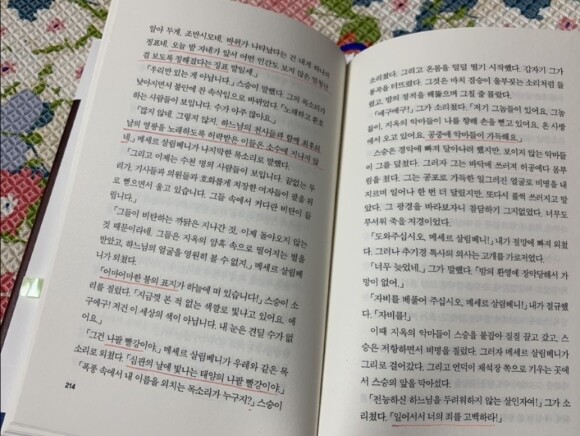 알아 두게, 조반시모네. 바위가 나타났다는 건 내게 하나의
징표네. 오늘 밤 자네가 앞서 어떤 인간도 보지 못한 엄청난
걸 보도록 정해졌다는 징표 말일세.」
「우리만 있는 게 아닙니다.」 스승이 말했다. 그의 목소리가
낮아지면서 불안에 찬 속삭임으로 바뀌었다. 「노래하고 환호
하는 사람들이 보입니다. 수가 아주 많아요.」
「많지 않네. 그렇지 않지. 하느님의 천사들과 함께 최후의
날의 영광을 노래하도록 허락받은 이들은 소수에 지나지 않
네.」 메세르 살림베니가 나지막한 목소리로 말했다.
「그리고 이제는 수천 명의 사람들이 보입니다. 끝없는 무
리, 기사들과 의원들과 호화롭게 치장한 여자들이 팔을 위
로 뻗으면서 울고 있습니다. 그들 속에서 커다란 비탄이 들
립니다.」
「그들이 비탄하는 까닭은 지나간 것, 이제 돌아오지 않는
것 때문이라네. 그들은 지옥의 암흑 속으로 떨어지는 벌을
받았고, 하느님의 얼굴을 영원히 볼 수 없지.」 메세르 살림베
니가 외쳤다.
「어마어마한 불의 표지가 하늘에 떠 있습니다!」 스승이 소
리를 질렀다. 「지금껏 본 적 없는 색깔로 빛나고 있어요. 에
구에구! 저건 이 세상의 색이 아닙니다. 내 눈은 견딜 수가 없
어요.」
「그건 나팔 빨강이야.」 메세르 살림베니가 우레와 같은 목
소리로 외쳤다. 「심판의 날에 빛나는 태양의 나팔 빨강이야.」
「폭풍 속에서 내 이름을 외치는 목소리가 누구지?」 스승이
214
소리쳤다. 그리고 온몸을 덜덜 떨기 시작했다. 갑자기 그가
울음을 터뜨렸다. 그것은 마치 짐승이 울부짖는 소리처럼 들
렸고, 밤의 정적을 꿰뚫으며 그칠 줄 몰랐다.
「에구에구!」 그가 소리쳤다. 「저기 그놈들이 있어요. 그놈
들이, 지옥의 악마들이 나를 향해 손을 뻗고 있어요. 온 사방
에서 오고 있어요. 공중에 악마들이 가득해요.」
스승은 경악에 빠져 달아나려 했지만, 보이지 않는 악마들
이 그를 덮쳤다. 그러자 그는 바닥에 쓰러져 허공에다 몸부
림을 쳤다. 그는 공포로 가득한 일그러진 얼굴로 비명을 내
지르며 일어나 한 번 더 달렸지만, 또다시 풀썩 쓰러지고 말
았다. 그 광경을 바라보자니 참담하기 그지없었다. 너무도
무서워 죽을 지경이었다.
「도와주십시오, 메세르 살림베니!」 내가 절망에 빠져 외쳤
다. 그러나 추기경 특사의 의사는 고개를 가로저었다.
「너무 늦었네.」 그가 말했다. 「밤의 환영에 장악당해서 가
망이 없어.」
「자비를 베풀어 주십시오, 메세르 살림베니!」 내가 절규했
다. 「자비를!」
이때 지옥의 악마들이 스승을 붙잡아 질질 끌고 갔고, 스
승은 저항하면서 비명을 질렀다. 그러자 메세르 살림베니가
그리로 걸어갔다. 그리고 언덕이 채석장 쪽으로 기우는 곳에
서 스승의 앞을 막아섰다.
「전능하신 하느님을 두려워하지 않는 살인자여!」 그가 소
리쳤다. 「일어서서 너의 죄를 고백하라!」